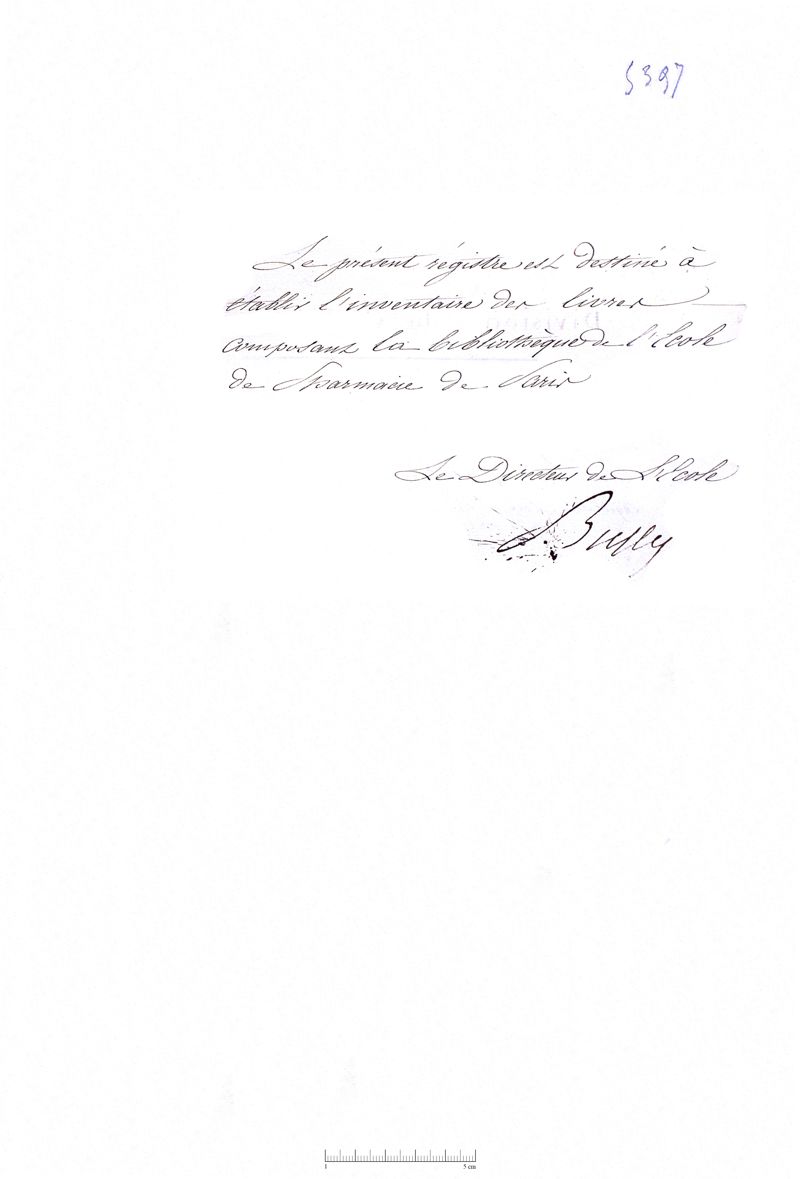 5397
Le présent régistre est destiné à
établir l'inventaire des livres
composant la bibliothèque de l'Ecole
de Pharmacie de Paris
Le Directeur de L'Ecole
Bussy
1 5 cm